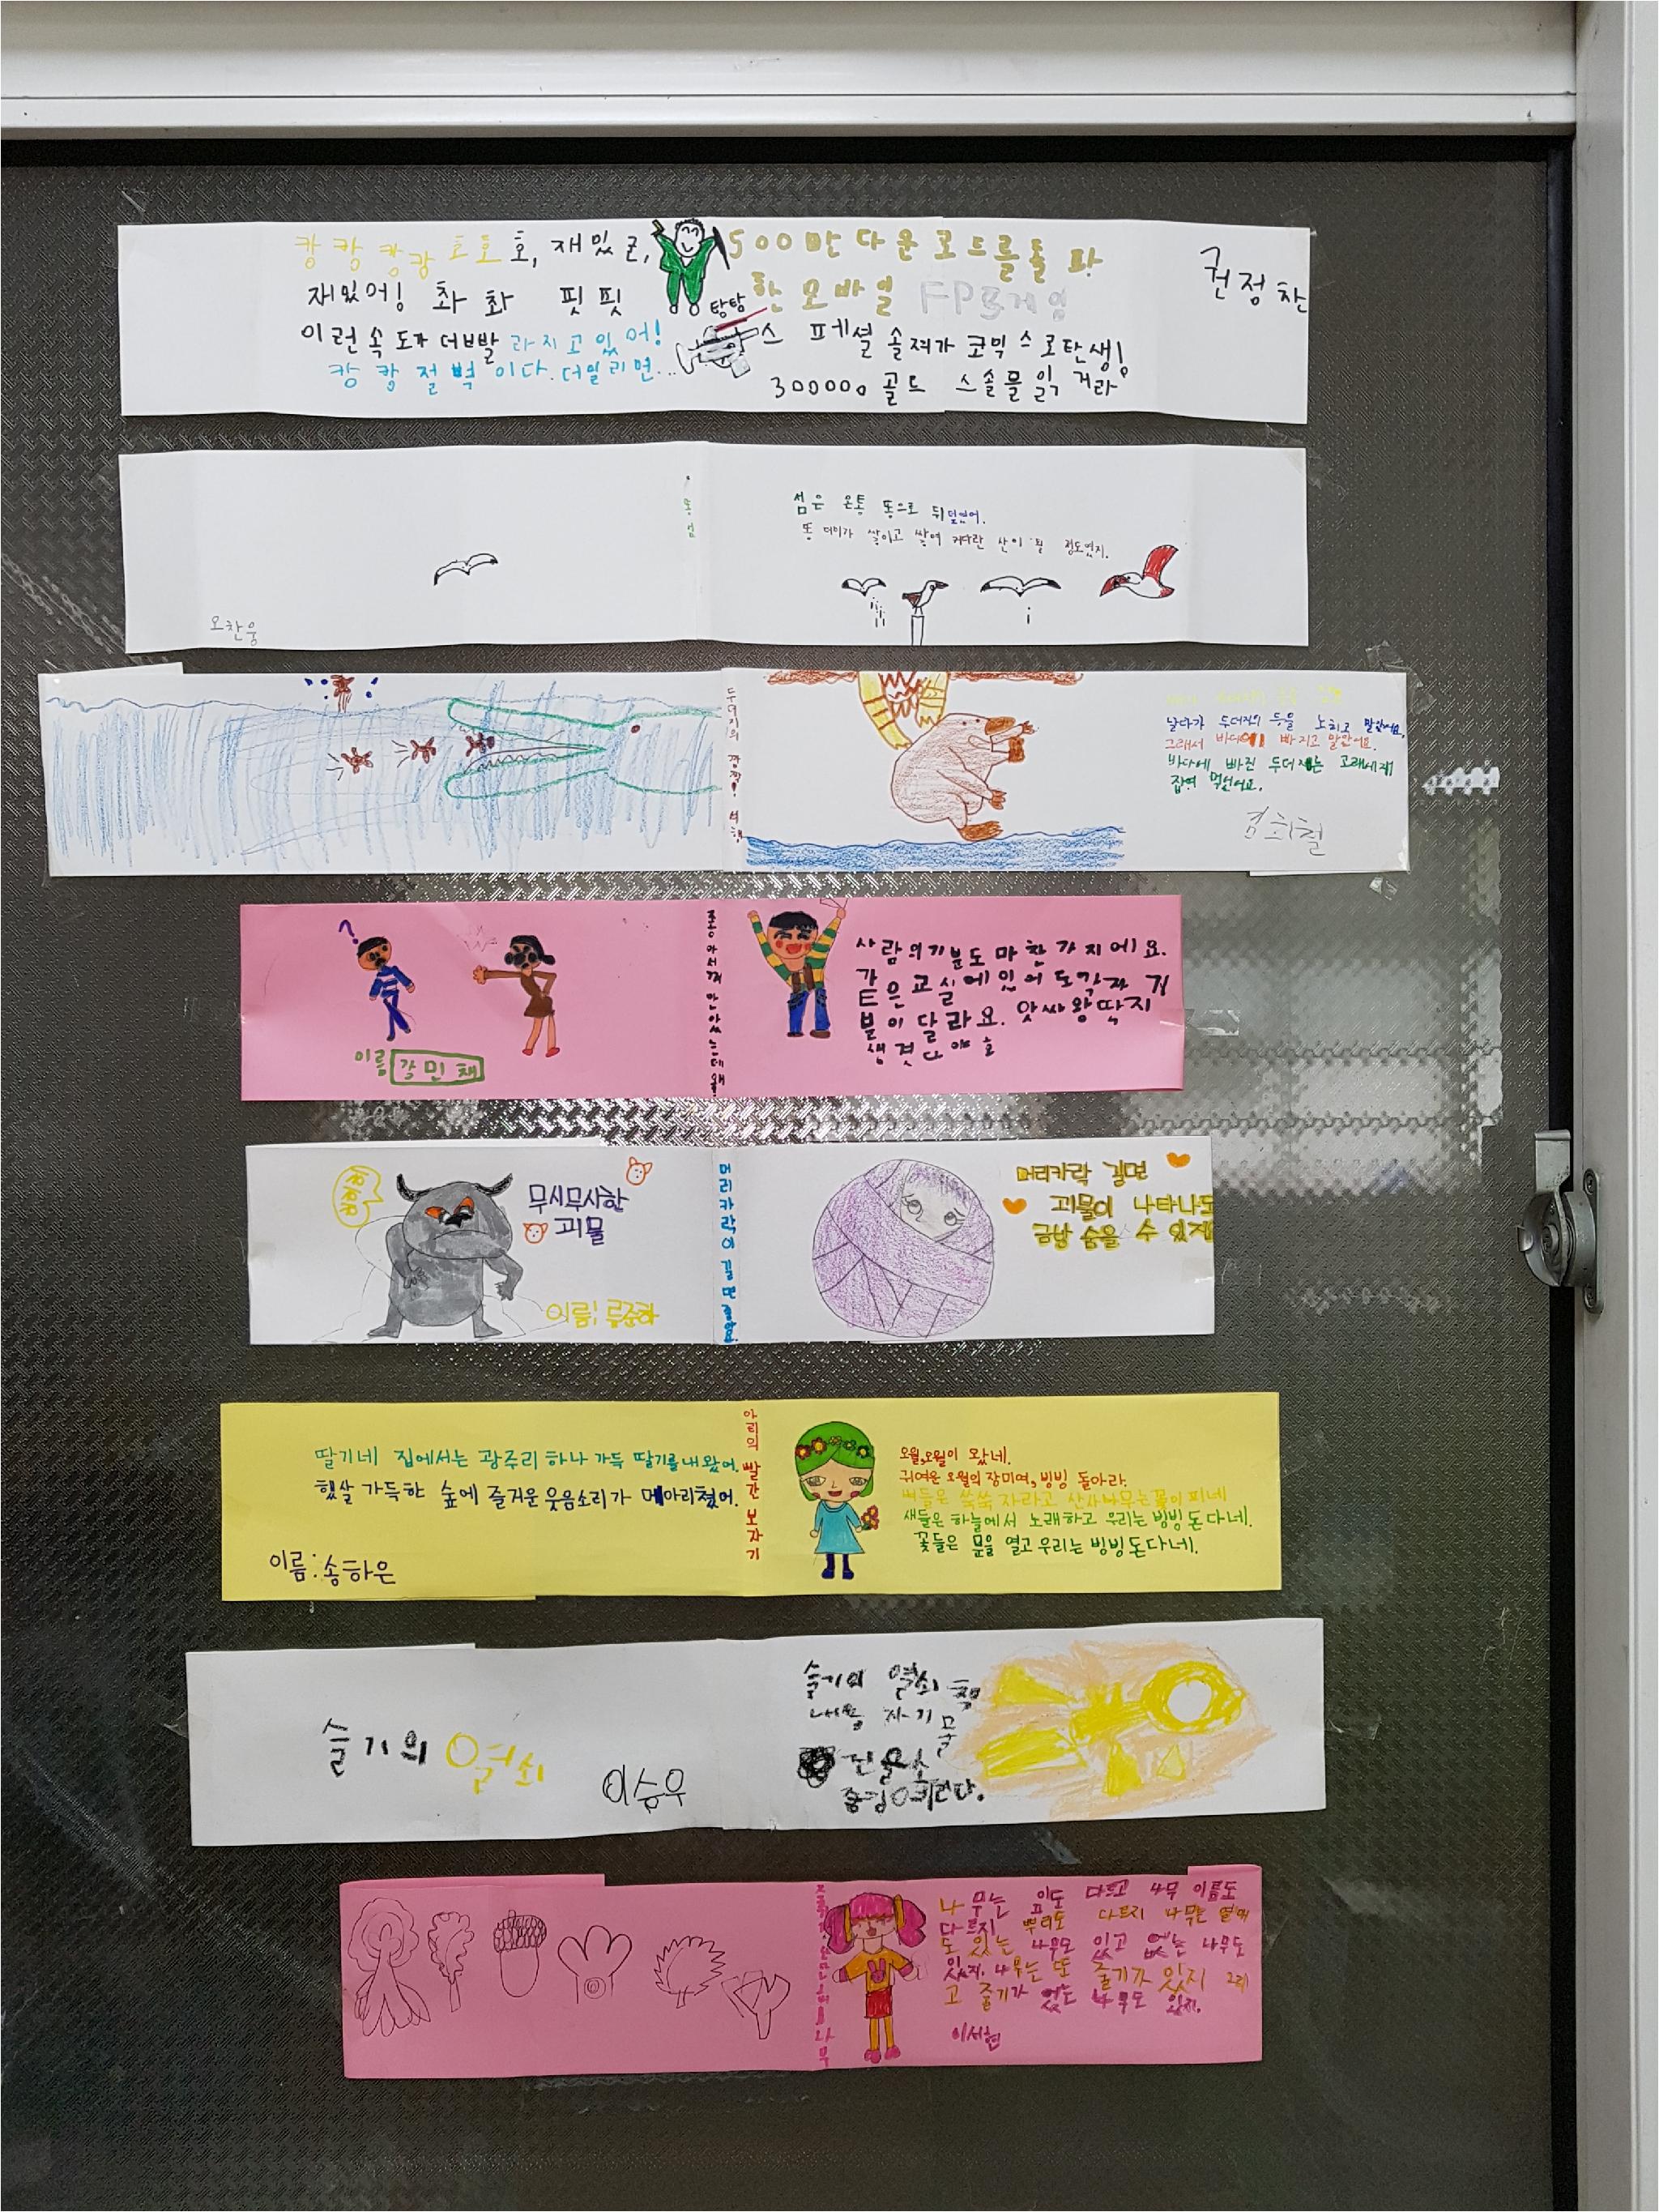 캉캉캉캉 호호호, 재밌군,
재밌어! 촤촤 핏핏
이런 속도가 더 빨 라지고있어!
캉캉 절벽이다. 더밀리면...
탕탕
500만 다운로드를 돌파
한 모바일 FPS게임
스페셜 솔져가 코믹스로 탄생!
300000 골드 스솔물 읽거라
권정찬
똥섬
섬은 온통 똥으로 뒤덮였어.
똥 더미가 쌓이고 쌓여 커다란 산이 될 정도였지.
오찬웅
두더지의 깜짝!
날다가 두더지의 등을 노치고 말았어요.
그래서 바다에 빠지고 말았어요.
바다에 빠진 두더지는 고래에게
잡여 먹었어요.
경희철
좋아서껴안았는데왜
이름 강민채
사람의기분도 마찬가지에요.
같은교실에있어도각자 기
분이 달라요. 앗싸왕딱지
생겻다 야호
머리카락이 길면 좋아요
무시무시한
괴물
이름: 류준하
머리카락 길면
괴물이 나타나도
금방 숨을 수 있지
아리의 빨간 보자기
딸기네 집에서는 광주리 하나 가득 딸기를내왔어.
햇살 가득한 숲에 즐거운 웃음소리가 메아리쳤어.
이름:송하은
오월,오월이 왔네.
귀여운 오월의 장미여, 빙빙 돌아라.
싹들은 쑥쑥 자라고 산사나무는꽃이피네
새들은 하늘에서 노래하고 우리는 빙빙돈다네.
꽃들은 문을 열고 우리는 빙빙돈다네.
슬기의 열쇠
이승우
슬기의 열쇠 책
내용 자기 물
건을 소
중김여긴다.
나무는 표도 다르고 나무 이름도
다르지 뿌리도 다르지 나무는 열매
도 있는 나무도 있고 없는 나무도
있지. 나무는 또 줄기가 있지 그리
고 줄기가 없는 나무도 있지.
이서현